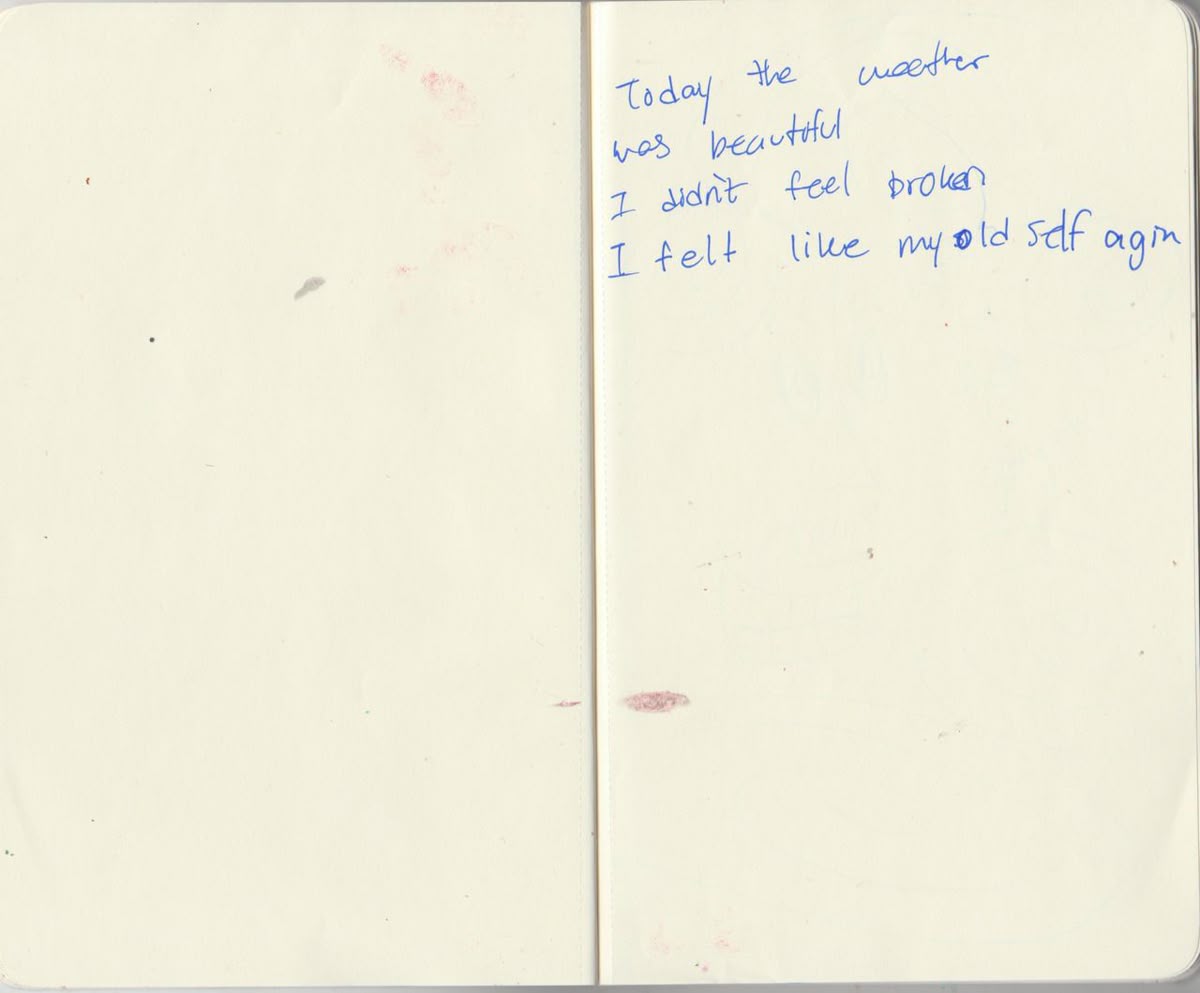 Today the weather
was beautiful
I didn't feel broken
I felt like my old self agin